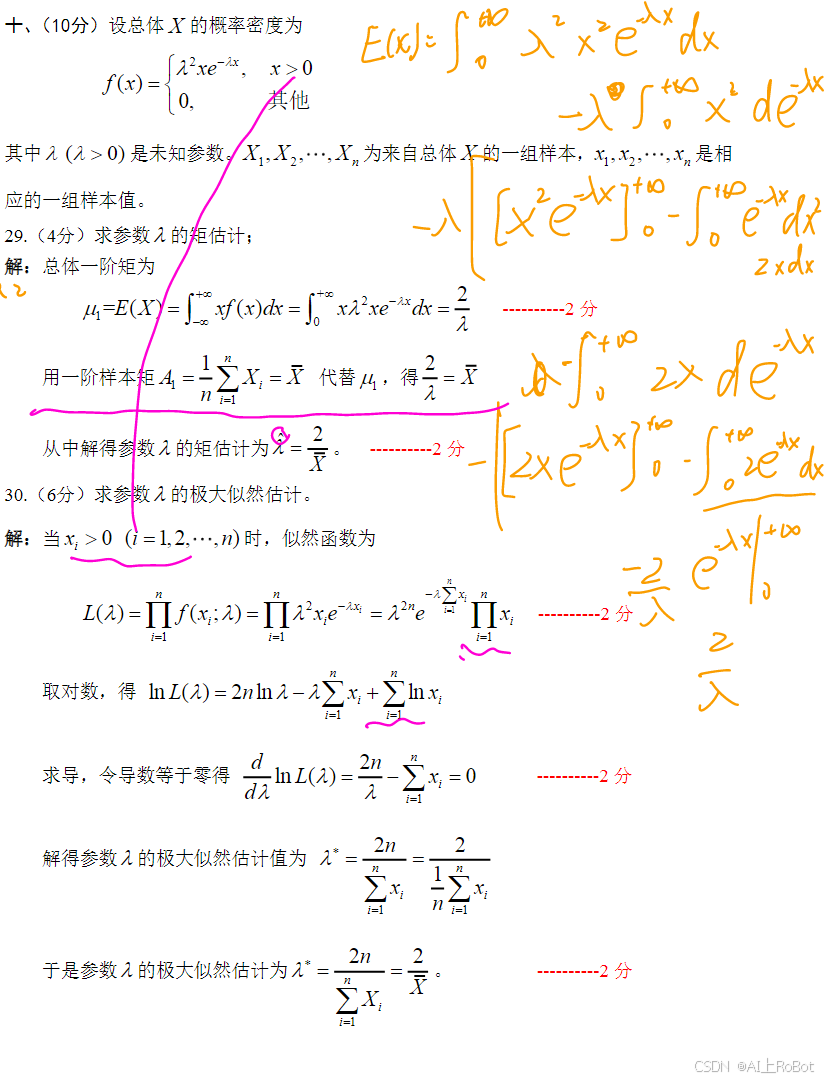 十、（10分）设总体 X 的概率密度为
f(x) = { λ²xe^{-λx}, x > 0
0, 其他
其中 λ (λ > 0) 是未知参数。X₁, X₂, ⋯, Xₙ 为来自总体 X 的一组样本，x₁, x₂, ⋯, xₙ 是相
应的一组样本值。
29.（4分）求参数 λ 的矩估计；
解：总体一阶矩为
μ₁=E(X) = ∫_{-∞}^{+∞} xf(x)dx = ∫_0^{+∞} xλ²xe^{-λx}dx = 2/λ -----------2 分
用一阶样本矩 A₁ = 1/n ∑_{i=1}^n X_i = X̄ 代替 μ₁，得 2/λ = X̄
从中解得参数 λ 的矩估计为 λ̂ = 2/X̄ 。 -----------2 分
30.（6分）求参数 λ 的极大似然估计。
解：当 x_i > 0 (i = 1,2,⋯,n) 时，似然函数为
L(λ) = ∏_{i=1}^n f(x_i; λ) = ∏_{i=1}^n λ²x_i e^{-λx_i} = λ^{2n} e^{-λ∑_{i=1}^n x_i} ∏_{i=1}^n x_i -----------2 分
取对数，得 ln L(λ) = 2n ln λ − λ∑_{i=1}^n x_i + ∑_{i=1}^n ln x_i
求导，令导数等于零得 d/dλ ln L(λ) = 2n/λ − ∑_{i=1}^n x_i = 0 -----------2 分
解得参数 λ 的极大似然估计值为 λ* = 2n/∑_{i=1}^n x_i = 2/(1/n ∑_{i=1}^n x_i)
于是参数 λ 的极大似然估计为 λ* = 2n/∑_{i=1}^n X_i = 2/X̄ 。 -----------2 分
E(x) = ∫_0^{+∞} λ² x² e^{-λx} dx
-λ ∫_0^{+∞} x² de^{-λx}
-λ [ [x² e^{-λx}]_0^{+∞} - ∫_0^{+∞} e^{-λx} dx²
2xdx
- ∫_0^{+∞} 2x de^{-λx}
- [ [2xe^{-λx}]_0^{+∞} - ∫_0^{+∞} 2e^{-λx} dx
-2/λ e^{-λx} |_0^{+∞}
2/λ
CSDN @AI上RoBot